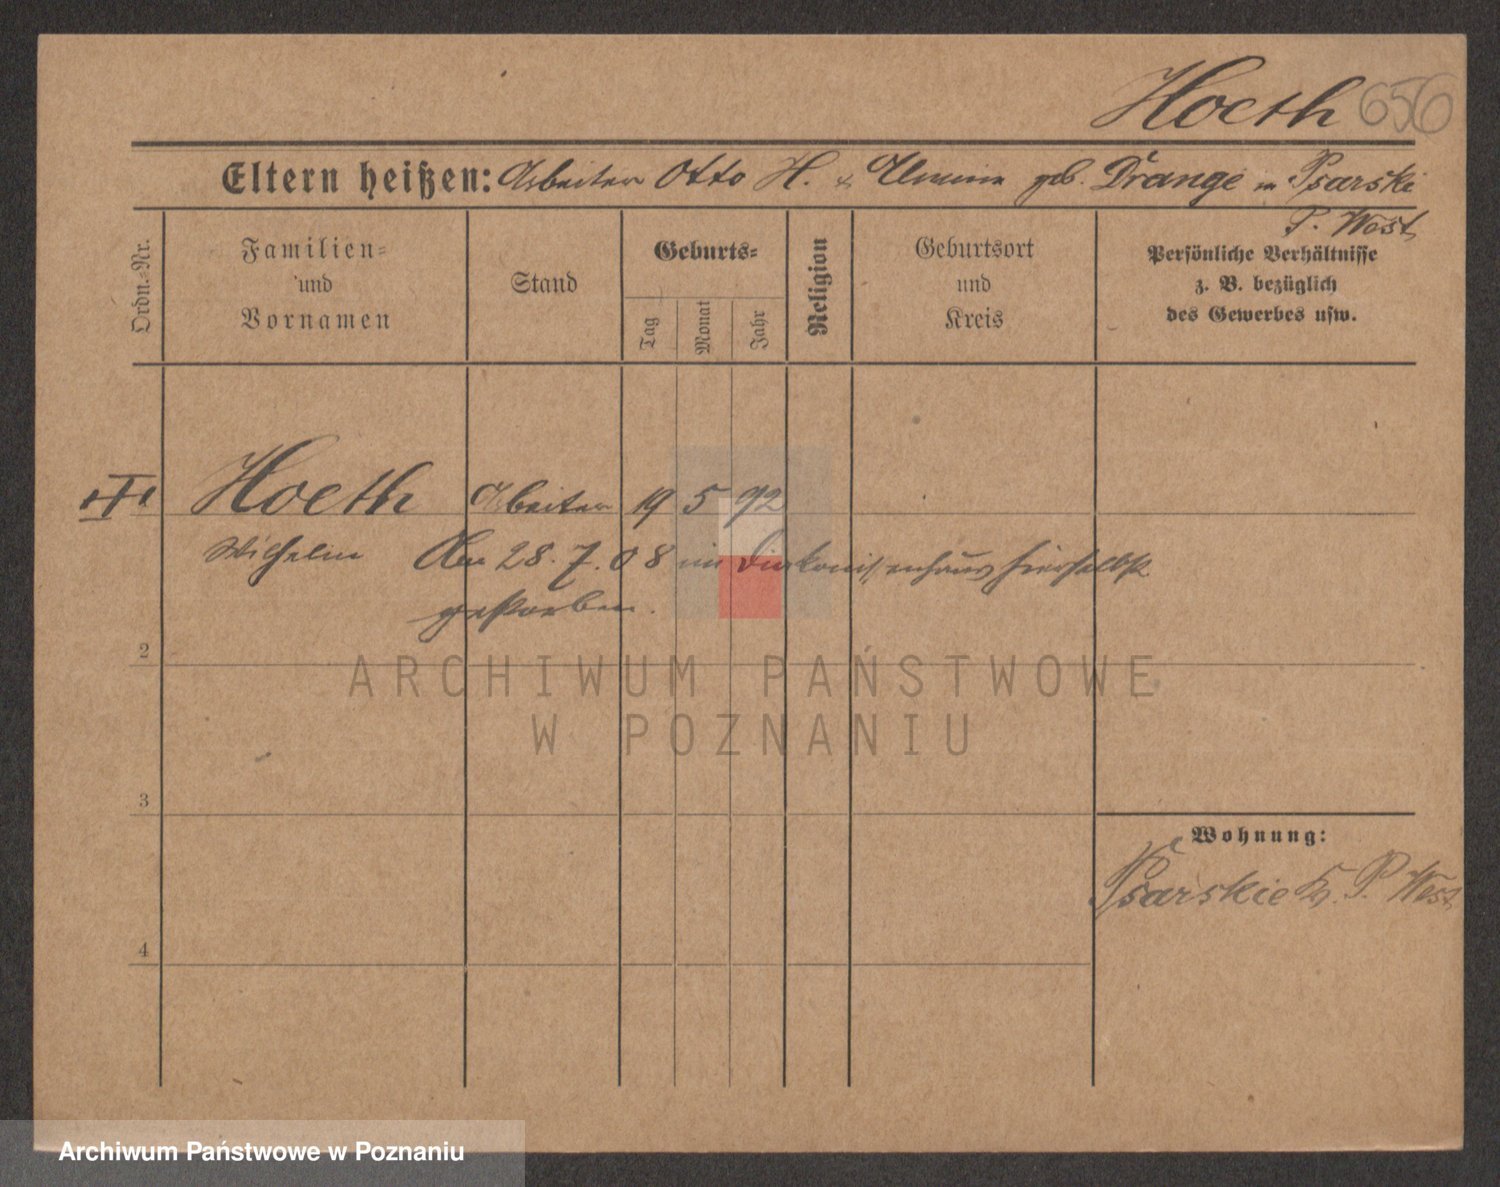 Hoeth 656
Eltern heißen: Arbeiter Otto H. & geb. Drange in Psarski
P. West
Ordn.=Nr.
Familien=
und
Vornamen
Stand
Geburts=
Tag
Monat
Jahr
Religion
Geburtsort
und
Kreis
Persönliche Verhältnisse
z. B. bezüglich
des Gewerbes usw.
Hoeth Arbeiter 19 5 92
Wilhelm Am 28. 7. 08 im Diakonissenhaus hierselbst
gestorben.
2
ARCHIWUM PAŃSTWOWE
W POZNANIU
3
Wohnung:
Psarskie K. P. West
4
Archiwum Państwowe w Poznaniu